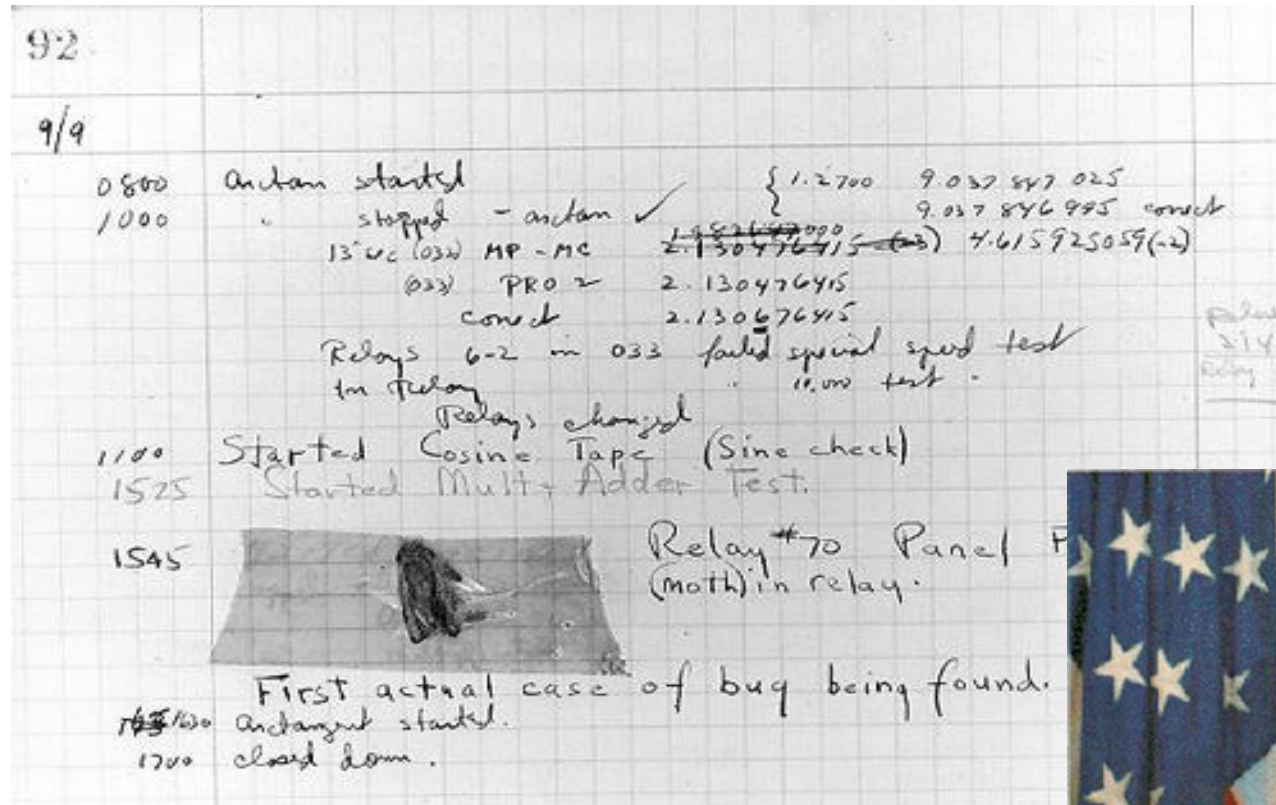 92
9/9
0800 arctan started { 1.2700 9.037 847 025
1000 " stopped - arctan ✓ 9.037 846 995 correct
13"uc (032) MP - MC 2.130476415 (-3) 4.615925059(-2)
(033) PRO 2 2.130476415
correct 2.130676415
Relays 6-2 in 033 failed special speed test
in Relay " 10,000 test .
Relays changed
1100 Started Cosine Tape (Sine check)
1525 Started Mult + Adder Test.
1545 Relay #70 Panel F
(moth) in relay.
First actual case of bug being found.
1630 arctangent started.
1700 closed down .